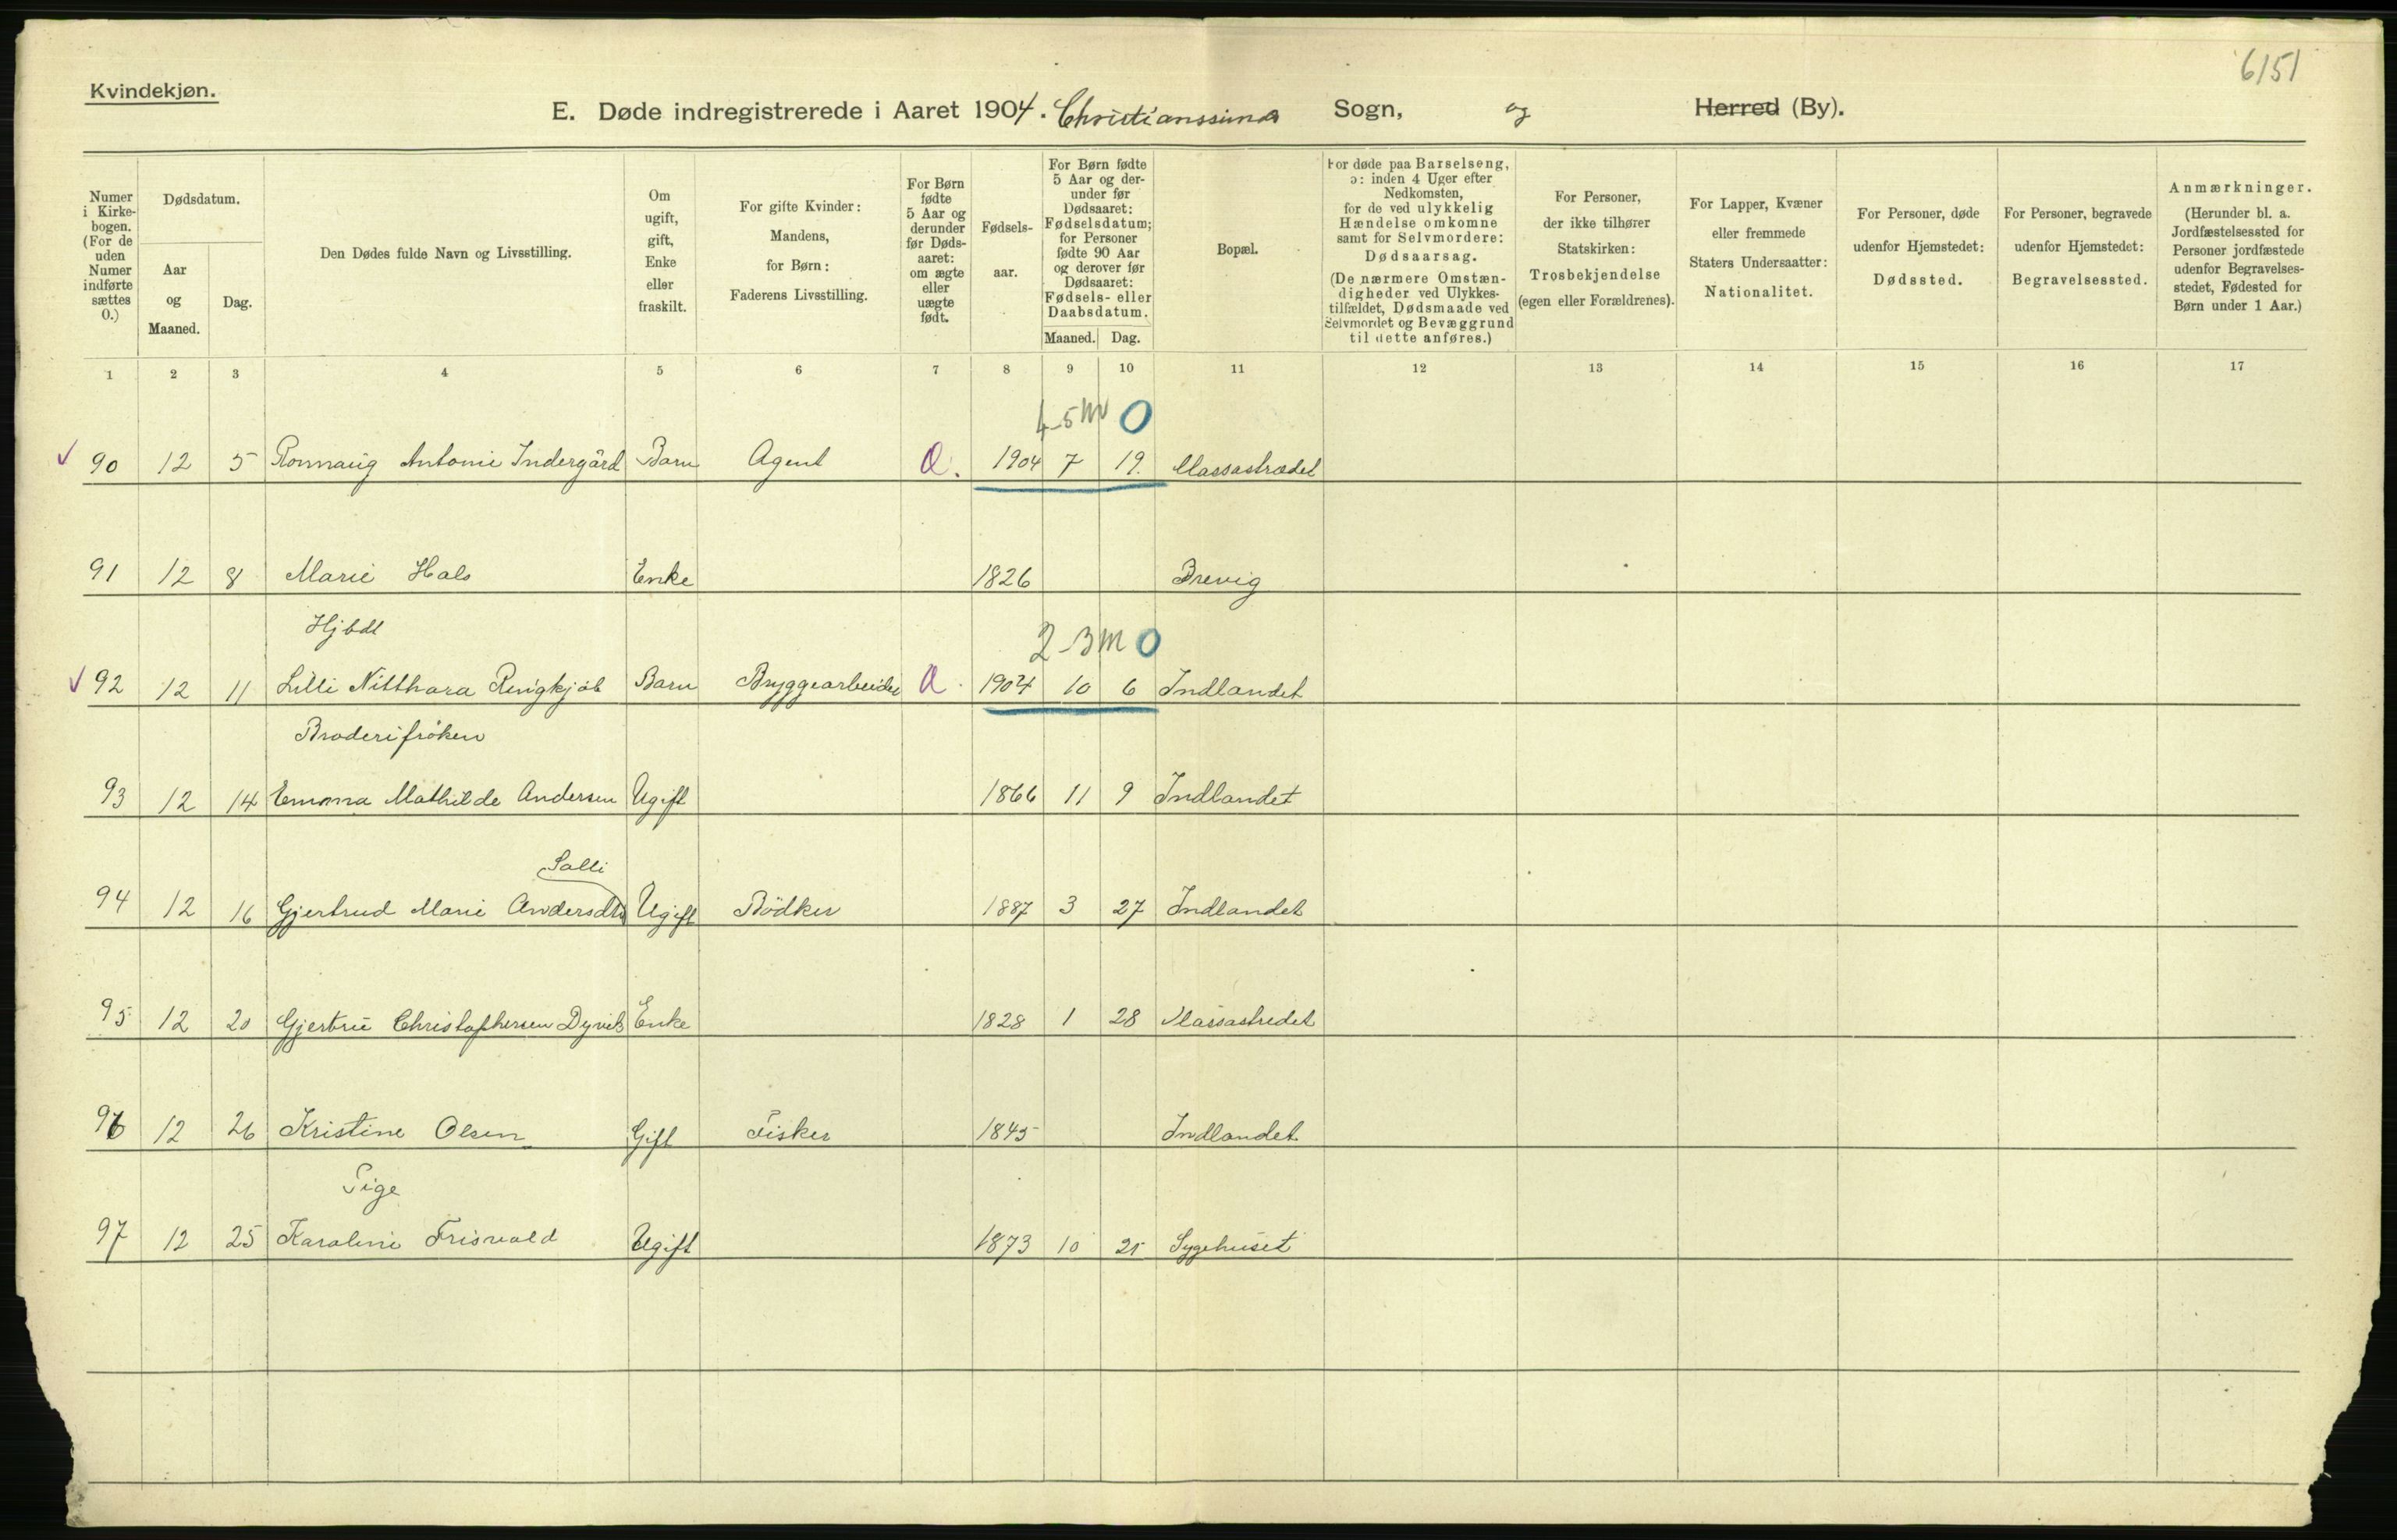 6151
Kvindekjøn.
E. Døde indregistrerede i Aaret 1904. Christianssund Sogn, og Herred (By).
Numer i Kirkebogen. (For de uden Numer indførte sættes 0.)
Dødsdatum.
Aar og Maaned.
Dag.
Den Dødes fulde Navn og Livsstilling.
Om ugift, gift, Enke eller fraskilt.
For gifte Kvinder: Mandens, for Børn: Faderens Livsstilling.
For Børn fødte 5 Aar og derunder før Dødsaaret: om ægte eller uægte født.
Fødselsaar.
For Børn fødte 5 Aar og derunder før Dødsaaret: Fødselsdatum; for Personer fødte 90 Aar og derover før Dødsaaret: Fødsels- eller Daabsdatum.
Maaned. Dag.
Bopæl.
For døde paa Barselseng, ɔ: inden 4 Uger efter Nedkomsten, for de ved ulykkelig Hændelse omkomne samt for Selvmordere: Dødsaarsag. (De nærmere Omstændigheder ved Ulykkestilfældet, Dødsmaade ved Selvmordet og Bevæggrund til dette anføres.)
For Personer, der ikke tilhører Statskirken: Trosbekjendelse (egen eller Forældrenes).
For Lapper, Kvæner eller fremmede Staters Undersaatter: Nationalitet.
For Personer, døde udenfor Hjemstedet: Dødssted.
For Personer, begravede udenfor Hjemstedet: Begravelsessted.
Anmærkninger. (Herunder bl. a. Jordfæstelsessted for Personer jordfæstede udenfor Begravelsesstedet, Fødested for Børn under 1 Aar.)
1 2 3 4 5 6 7 8 9 10 11 12 13 14 15 16 17
4-5 m 0
90 12 5 Ronnaug Antonie Indergård Barn Agent 1904 7 19. Vlassastrædet
91 12 8 Marie Hals Enke 1826 Brevig
Hjbdt
2-3 m 0
92 12 11 Lilli Ringkjøb Barn Bryggearbeider 1904 10 6 Indlandet
Broderifröken
93 12 14 Emma Mathilde Andersen Ugift 1866 11 9 Indlandet
Salli
94 12 16 Gjertrud Marie Andersdtr Ugift Bödker 1887 3 27 Indlandet
95 12 20 Christophersen Dyrvik Enke 1828 1 28 Vlassastredet
96 12 26 Kristine Olsen Gift Fisker 1845 Indlandet
Pige
97 12 25 Karoline Frisvold Ugift 1873 10 25 Sygehuset